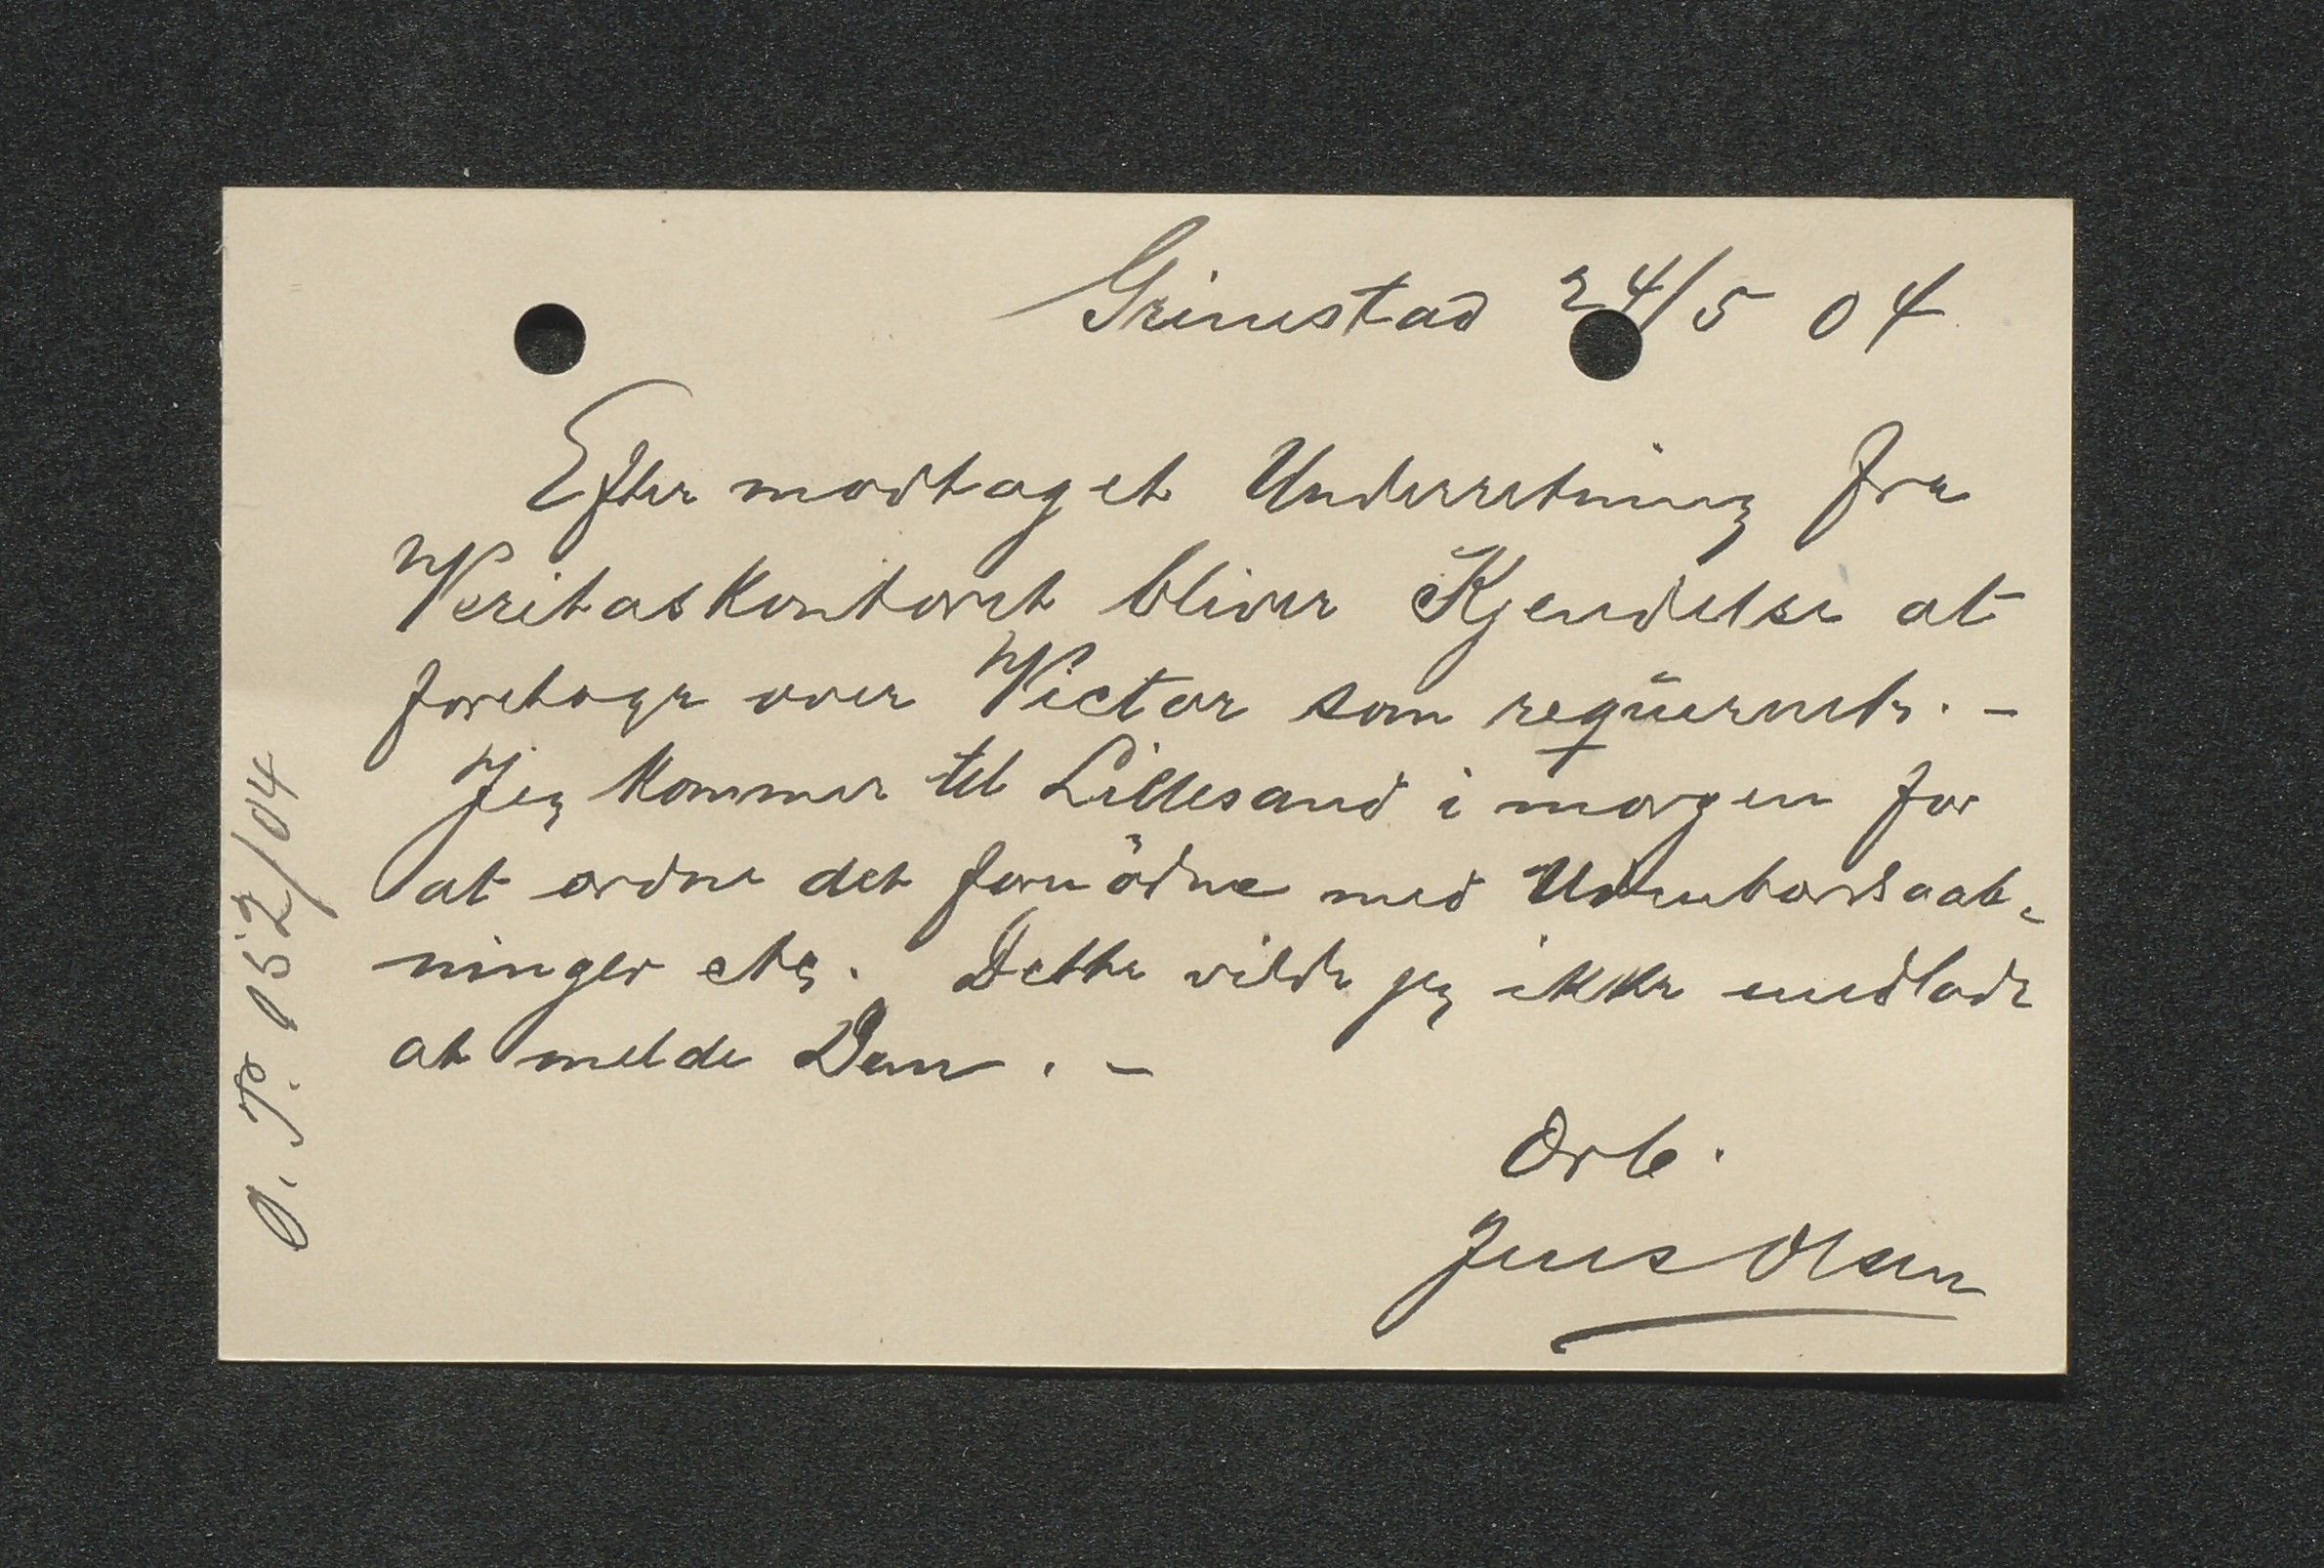 Grimstad 24/5 04
Efter modtaget Underretning fra
Veritaskontoret bliver Kjendelse at
foretage over Victor som requireret. -
Jeg kommer til Lillesand i morgen for
at ordne det fornödne med Udenbordsaab-
ninger etc. Dette vilde jeg ikke undlade
at melde Dem. -
Ærb.
Jens Olsen
O. P. 152/04